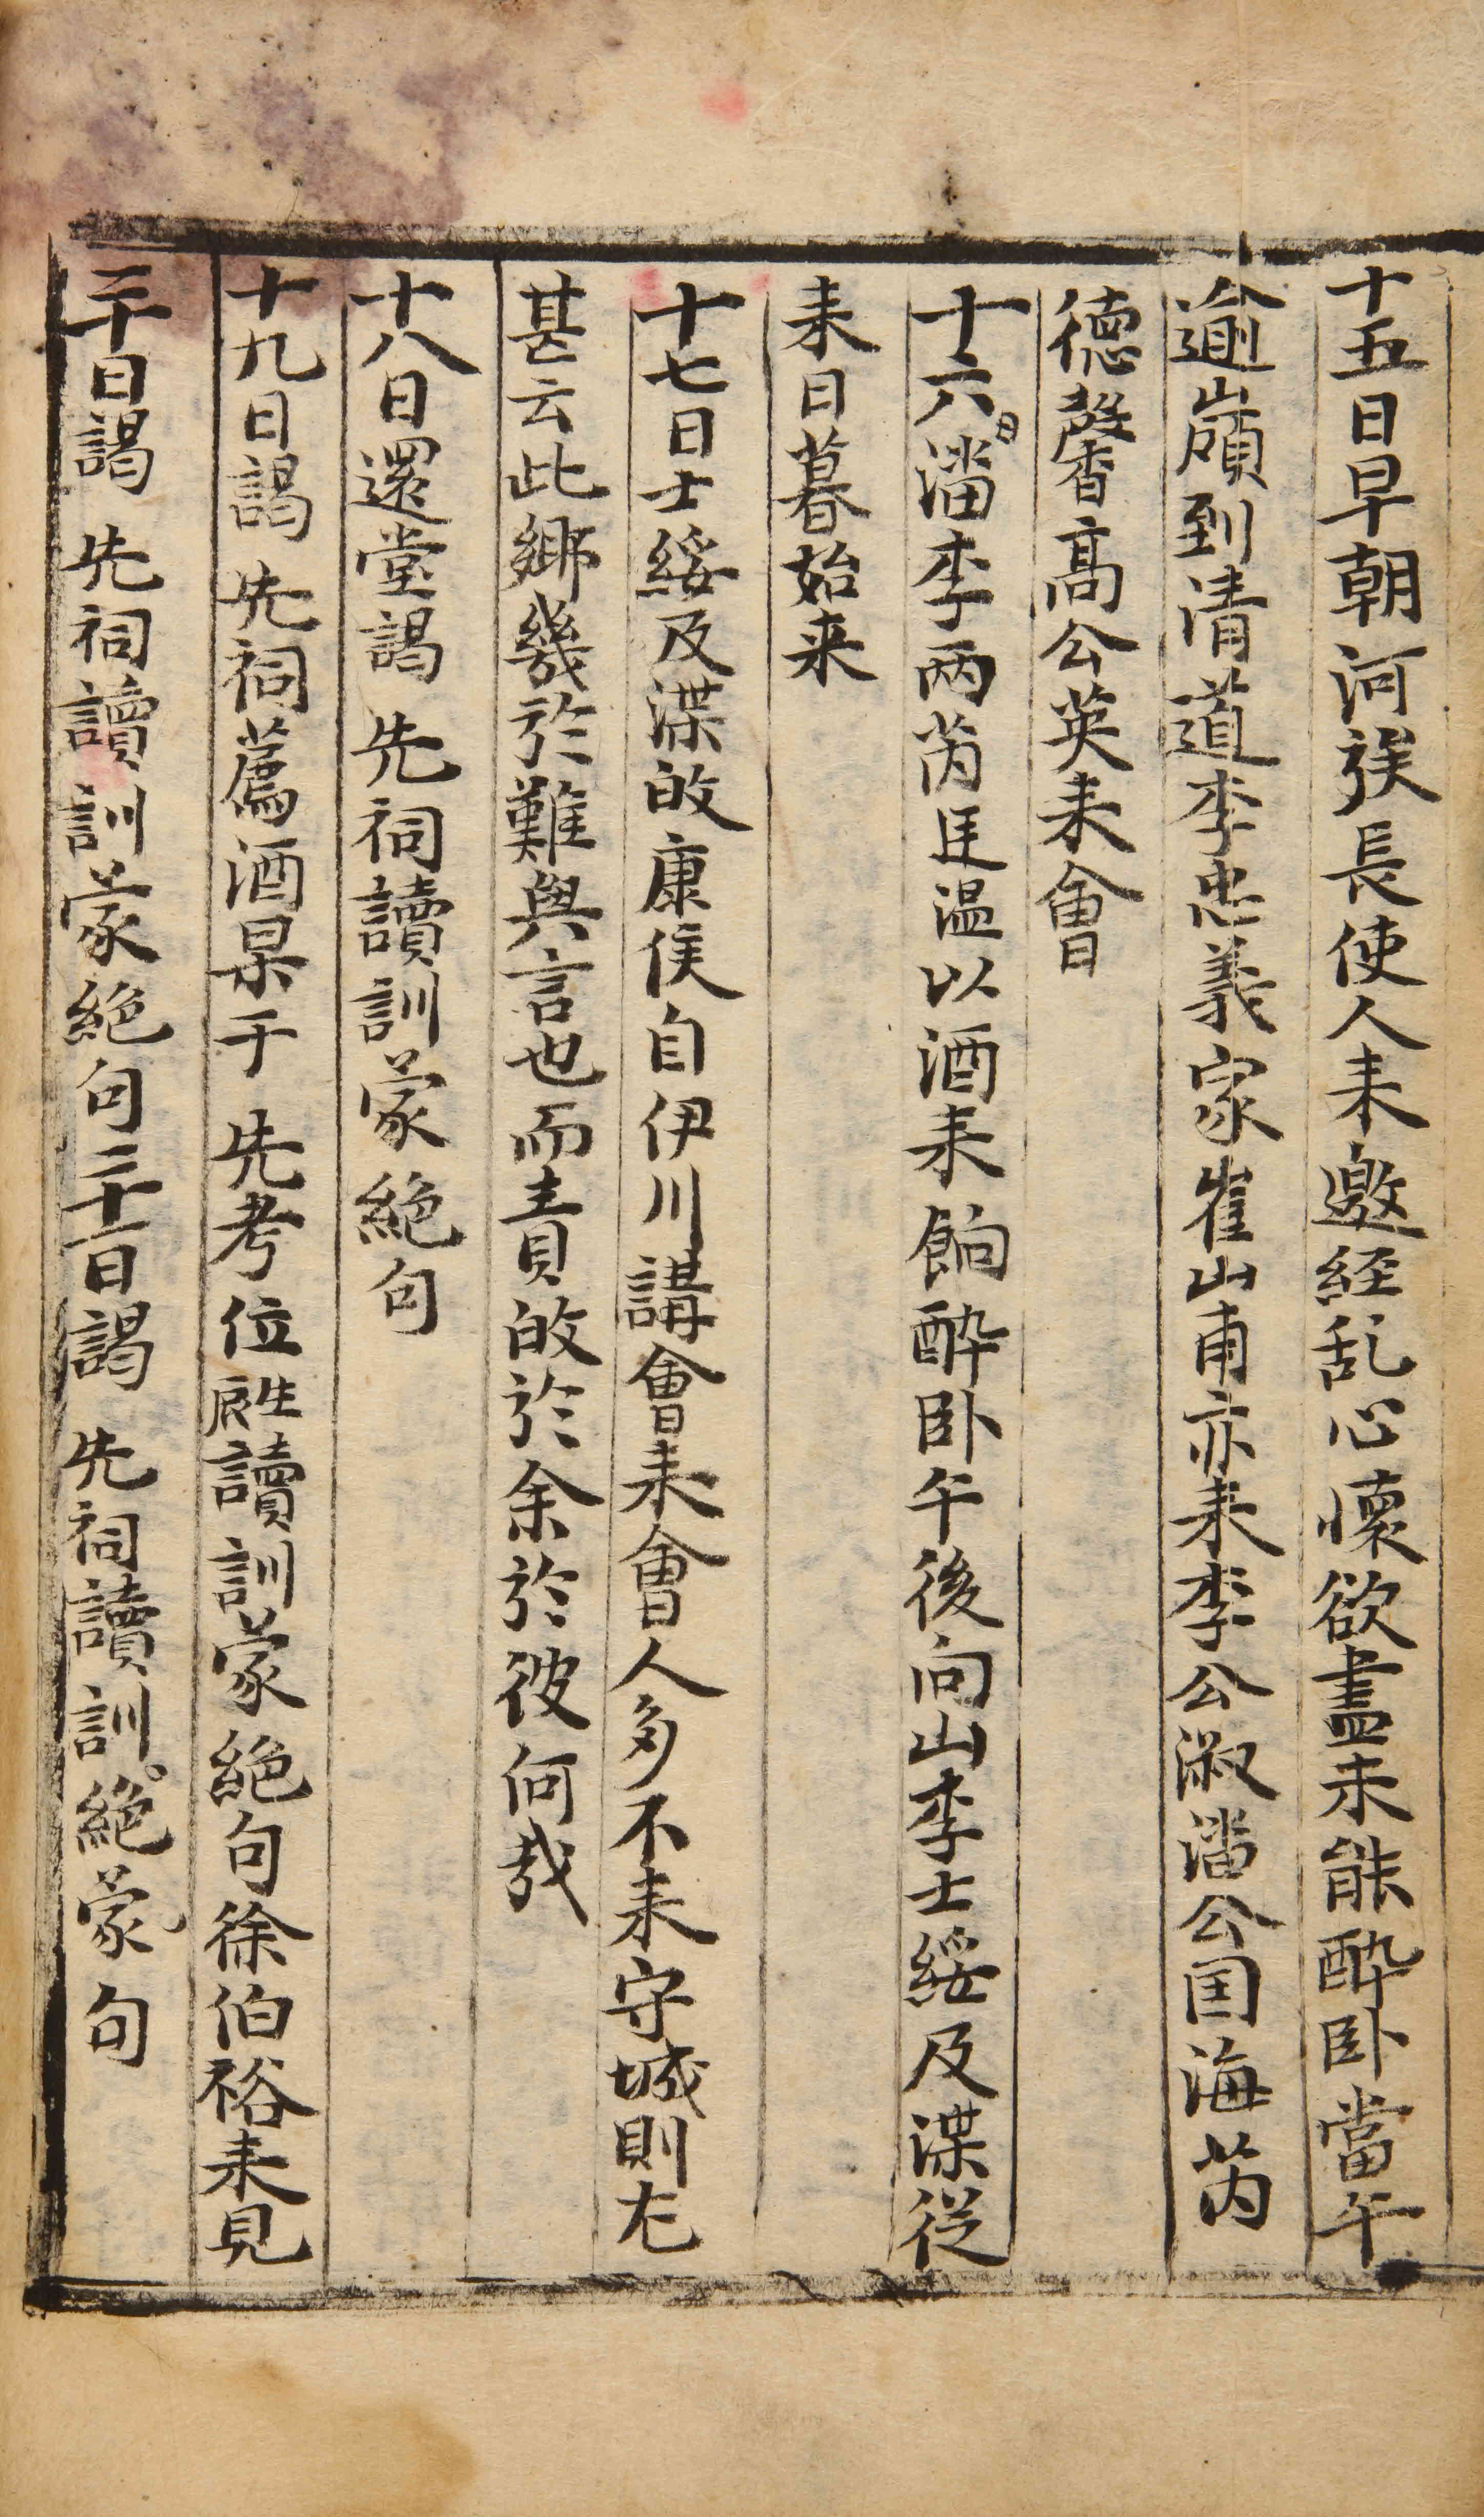 十五日早朝河族長使人来邀経乱心懷欲盡未能酔卧當午
逾嶺到清道李忠義家崔山甫亦来李公淑潘公国海芮
德馨高公英来會
十六日潘李兩芮且温以酒来餉酔卧午後向山李士綏及渫従
来日暮始来
十七日士綏及渫㫼康侯自伊川講會来會人多不来守城則尤
甚云此鄉幾於難與言也而責㫼於余於彼何哉
十八日還堂謁 先祠讀訓蒙絶句
十九日謁 先祠薦酒果于 先考位讀訓蒙絶句徐伯裕来見
二十日謁 先祠讀訓蒙絶句二十一日謁 先祠讀訓絶蒙句